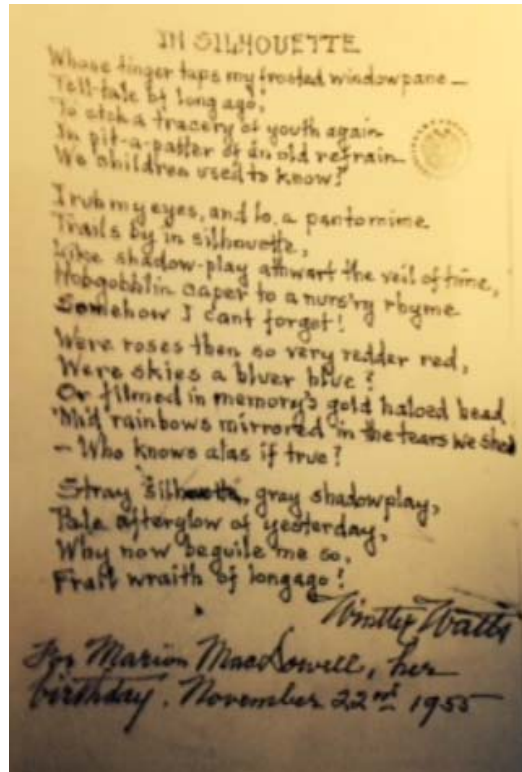 IN SILHOUETTE
Whose finger taps my frosted windowpane —
Tell-tale of long ago!
To etch a tracery of youth again
In pit-a-patter of an old refrain
We children used to know?
I rub my eyes, and lo, a pantomime
Trails by in silhouette,
Like shadow-play athwart the veil of time,
Hobgobblin caper to a nurs'ry rhyme
Somehow I cant forget!
Were roses then so very redder red,
Were skies a bluer blue?
Or filmed in memory's gold haloed bead
'Mid rainbows mirrored in the tears we shed
— Who knows alas if true?
Stray silhouette, gray shadowplay,
Pale afterglow of yesterday,
Why now beguile me so,
Frail wraith of longago!
Wintter Watts
For Marion MacDowell, her
birthday. November 22nd 1955